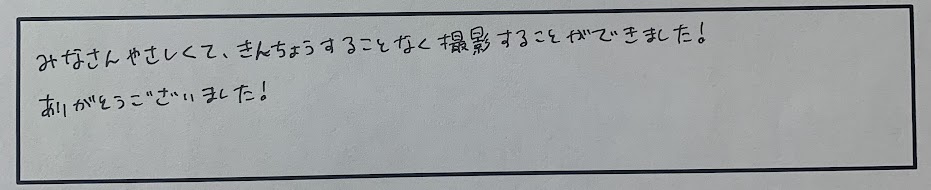 みなさんやさしくて、きんちょうすることなく撮影することができました!
ありがとうございました!